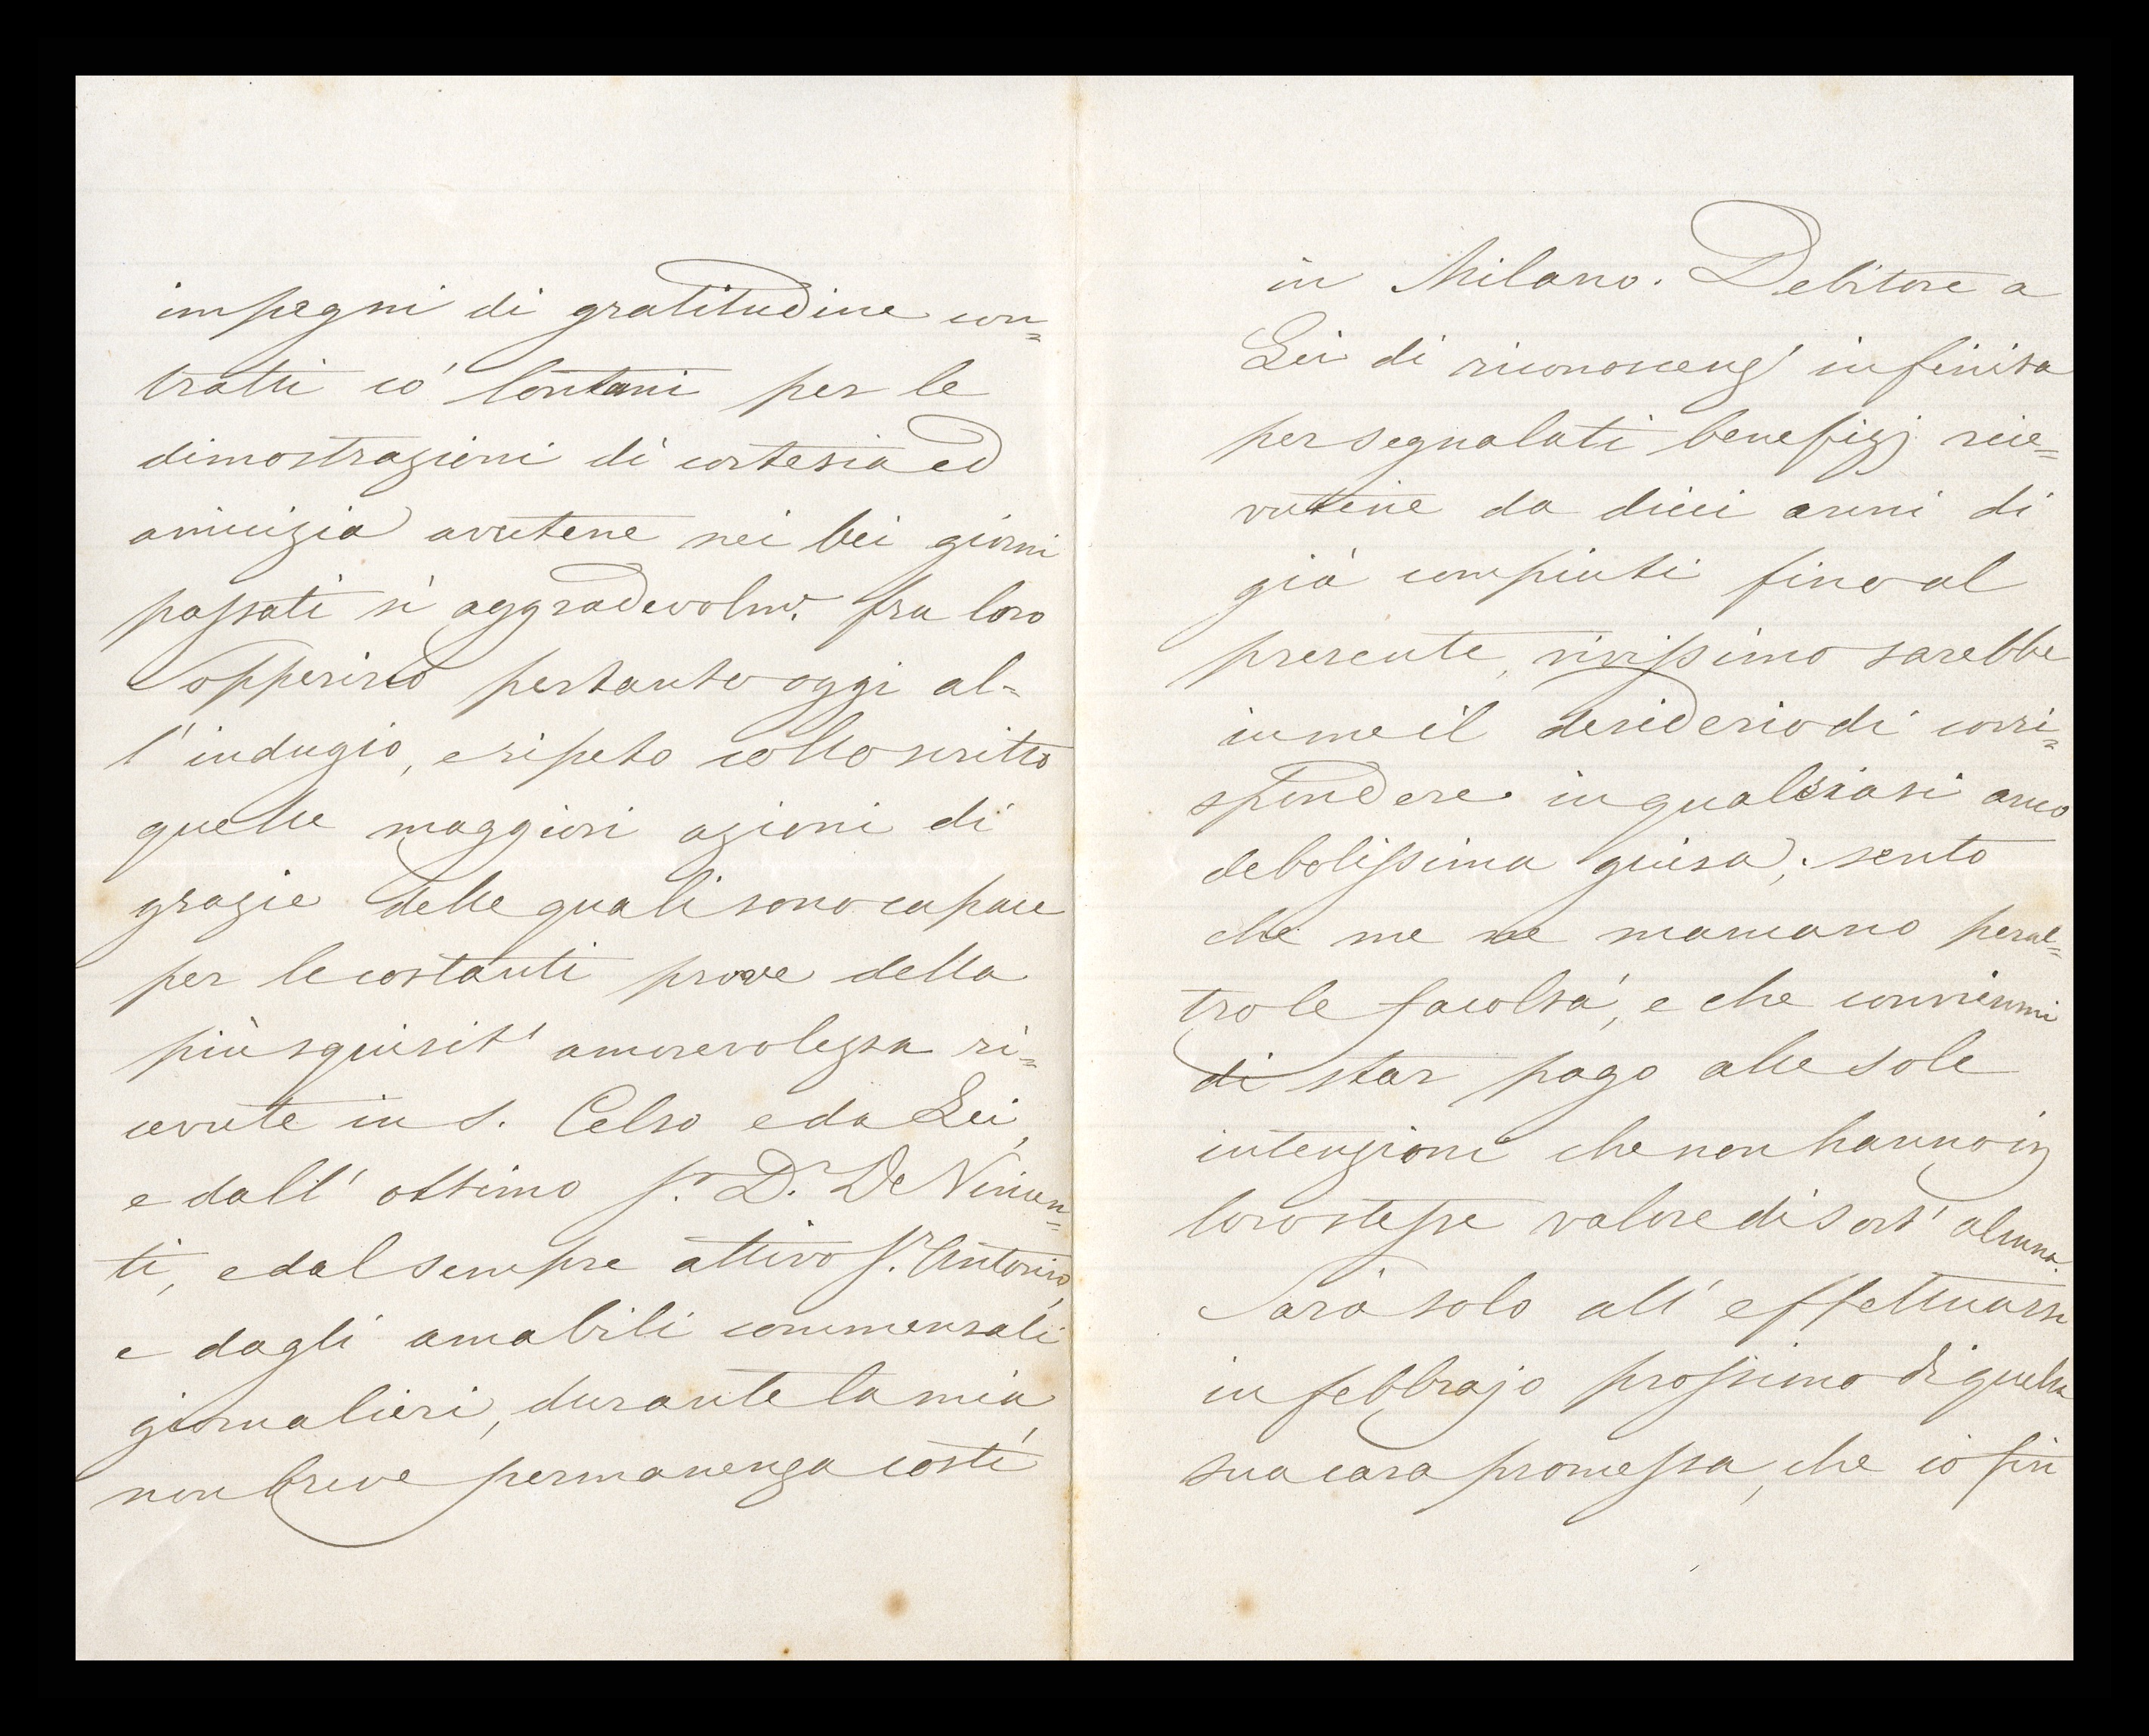 impegni di gratitudine con=
tratti co' lontani per le
dimostrazioni di cortesia ed
amicizia avutene nei bei giorni
passati sì aggradevolm.e fra loro
Sopperisco pertanto oggi al=
l'indugio, e ripeto collo scritto
quelle maggiori azioni di
grazie delle quali sono capace
per le costanti prove della
più squisit' amorevolezza ri=
cevute in S. Celso e da Lei,
e dall' ottimo S.r D.r De Vincen=
ti, e dal sempre attivo S.r Antonio,
e dagli amabili commensali
giornalieri, durante la mia
non breve permanenza costì
in Milano. Debitore a
Lei di riconoscenz' infinita
per segnalati benefizj rice=
vutine da dieci anni di
già compiuti fino al
presente, vivissimo sarebbe
in me il desiderio di corri=
spondere in qualsiasi anco
debolissima guisa; sento
che me ne mancano peral=
tro le facoltà, e che convienmi
di star pago alle sole
intenzioni che non hanno in
loro stesse valore di sort' alcuna.
Sarà solo all' effettuarsi
in febbrajo prossimo di quella
sua cara promessa, che io fin